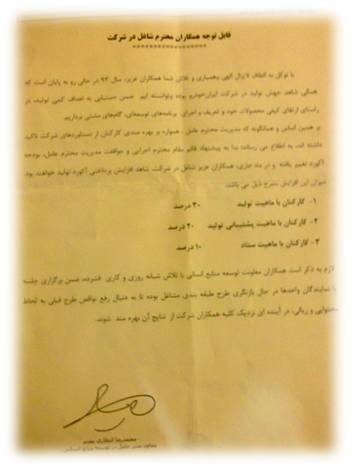 قابل توجه همکاران محترم شاغل در شرکت
با توکل به الطاف لایزال الهی وهمیاری و تلاش شما همکاران عزیز، سال ۹۳ در حالی رو به پایان است که
همگی شاهد جهش تولید در شرکت ایران‌خودرو بوده وتوانسته ایم ضمن دستیابی به اهداف کمی تولید، در
راستای ارتقای کیفی محصولات خود و تعریف و اجرای برنامه‌های توسعه‌ای، گام‌های مثبتی برداریم.
بر همین اساس و همانگونه که مدیریت محترم عامل، همواره بر بهره مندی کارکنان از دستاوردهای شرکت تاکید
داشته اند، به اطلاع می رساند: بنا به پیشنهاد قائم مقام محترم اجرایی و موافقت مدیریت محترم عامل، بودجه
آکورد تغییر یافته و در ماه جاری، همکاران عزیز شاغل در شرکت شاهد افزایش پرداختی آکورد تولید خواهند بود.
میزان این افزایش بشرح ذیل می باشد:
۱- کارکنان با ماهیت تولید ۳۰ درصد
۲- کارکنان با ماهیت پشتیبانی تولید ۲۰ درصد
۳- کارکنان با ماهیت ستاد ۱۰ درصد
لازم به ذکر است همکاران معاونت توسعه منابع انسانی با تلاش شبانه روزی و کاری فشرده، ضمن برگزاری جلسه
با نمایندگان واحدها در حال بازنگری طرح طبقه بندی مشاغل بوده تا به دنبال رفع نواقص طرح قبلی به لحاظ
محتوایی و ریالی، در آینده ای نزدیک کلیه همکاران شرکت از نتایج آن بهره مند شوند.
محمدرضا
معاون مدیر عامل در توسعه منابع انسانی